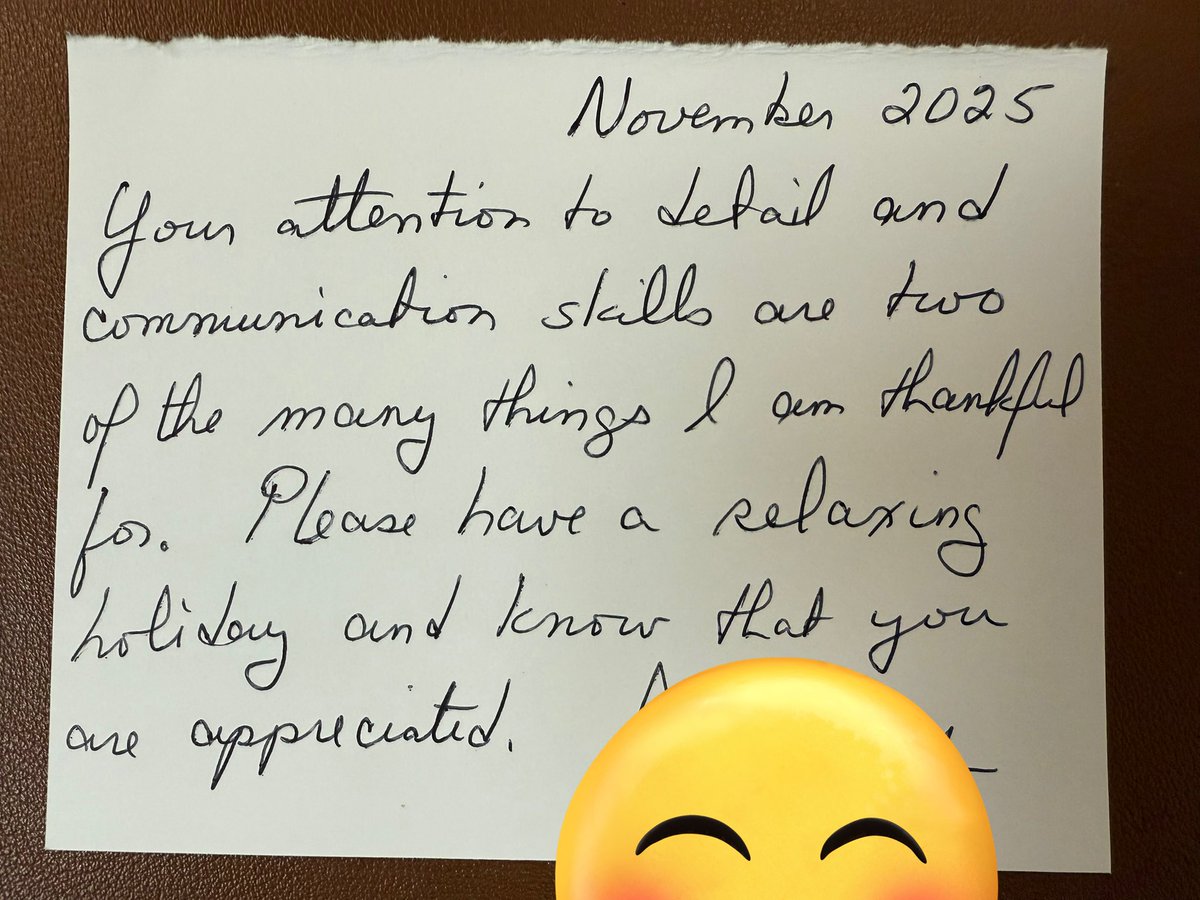 November 2025
Your attention to detail and
communication skills are two
of the many things I am thankful
for. Please have a relaxing
holiday and know that you
are appreciated.